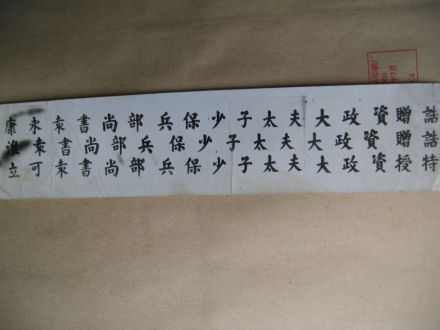 誥贈資政大夫太子少保兵部尚書袁永康
誥贈資政大夫太子少保兵部尚書袁淮
特授資政大夫太子少保兵部尚書袁可立